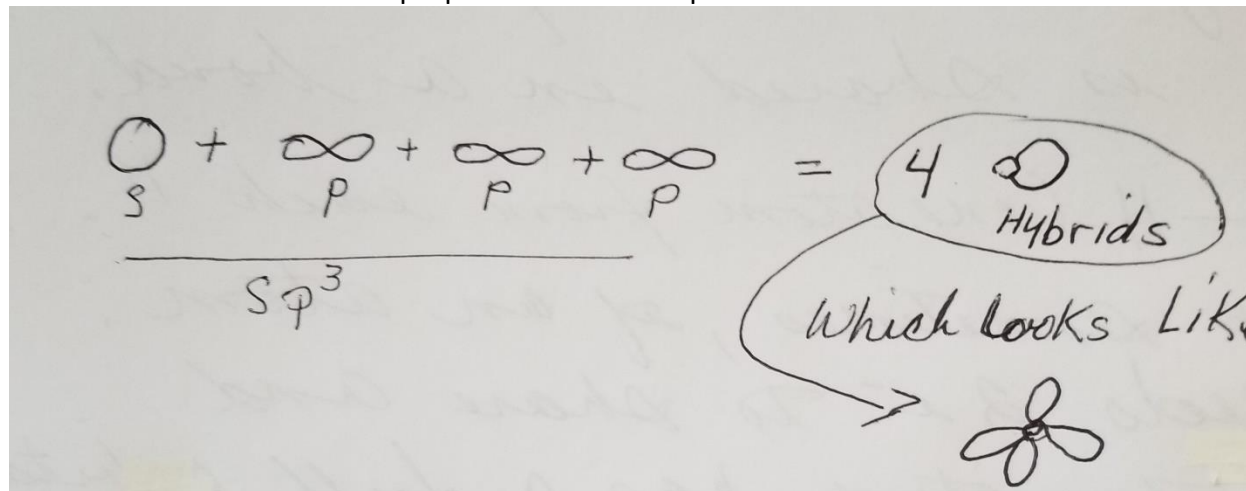 + + + = 4
s p p p Hybrids
sp³
Which Looks Like